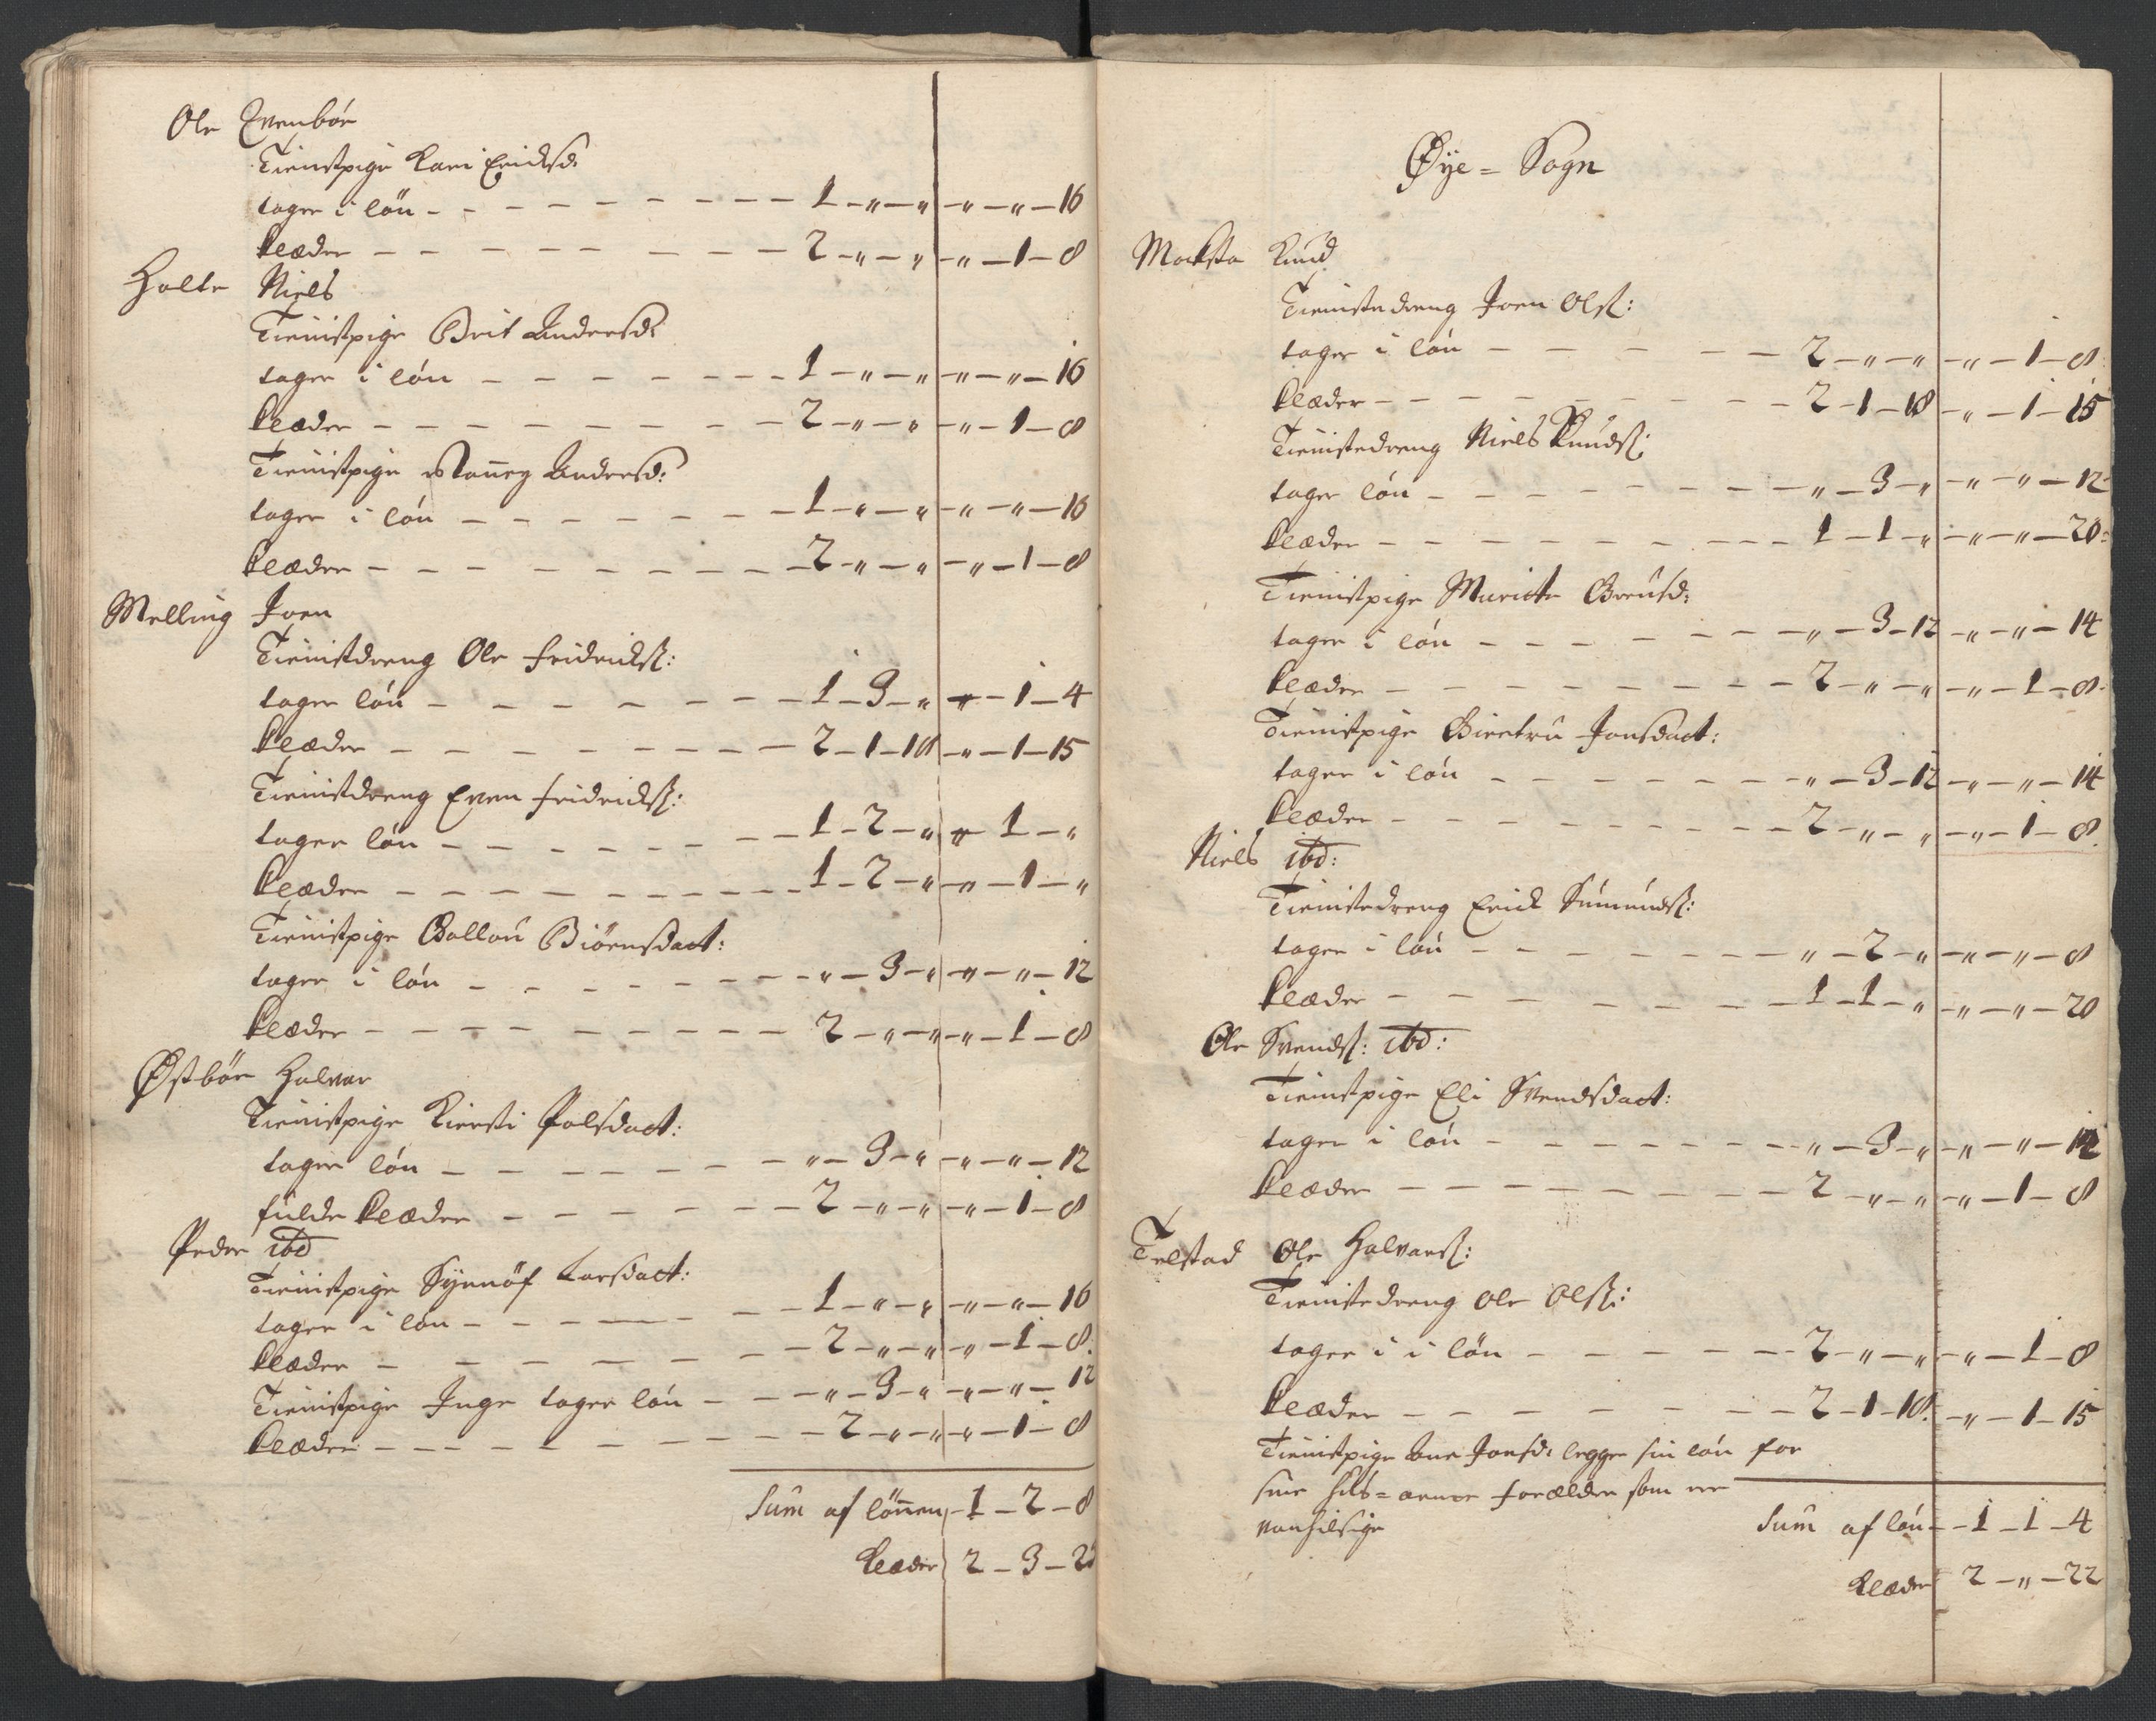 Ole Evenbøe
Tienistpige Kari Ericksd:
tager i løn - - - 1 - " - " - " - " - 16
klæder - - - 2 - " - " - " - 1 - 8
Holte Niels
Tienistpige Brit Andersd:
tager i løn - - - 1 - " - " - " - " - 16
klæder - - - 2 - " - " - " - 1 - 8
Tienistpige Andersd:
tager i løn - - - 1 - " - " - " - " - 16
klæder - - - 2 - " - " - " - 1 - 8
Melling Joen
Tienistdreng Ole fridricks:
tager løn - - - 1 - 3 - " - " - 1 - 4
klæder - - - 2 - 1 - 18 - " - 1 - 15
Tienistdreng Even fridricks:
tager løn - - - 1 - 2 - " - " - 1 - "
klæder - - - 1 - 2 - " - " - 1 - "
Tienistpige Biörnsdaat:
tager i løn - - - " - 3 - " - " - " - 12
klæder - - - 2 - " - " - " - 1 - 8
Østbøe Halvor
Tienistpige Kiersti Polsdaat:
tager løn - - - " - 3 - " - " - " - 12
fulde klæder - - - 2 - " - " - " - 1 - 8
Peder ibd
Tienistpige Synnöf Larsdaat:
tager i løn - - - 1 - " - " - " - " - 16
klæder - - - 2 - " - " - " - 1 - 8.
Tienistpige Inge tager løn - - - " - 3 - " - " - " - 12
klæder - - - 2 - " - " - " - 1 - 8
Sum af lönnen - 1 - 2 - 8
klæder 2 - 3 -
Øye = Sogn
Moksta Knud
Tienistedreng Joen Ols:
tager i løn - - - 2 - " - " - " - 1 - 8
klæder - - - 2 - 1 - 18 - " - 1 - 15
Tienistedreng Niels Knuds:
tager løn - - - " - 3 - " - " - " - 12
klæder - - - 1 - 1 - " - " - " - 20
Tienistpige Maritte
tager i løn - - - " - 3 - 12 - " - " - 14
klæder - - - 2 - " - " - " - 1 - 8
Tienistpige Giertru Jonsdaat:
tager i løn - - - " - 3 - 12 - " - " - 14
klæder - - - 2 - " - " - " - 1 - 8.
Niels ibd:
Tienistedreng Erick Amunds:
tager i løn - - - " - 2 - " - " - " - 8
klæder - - - 1 - 1 - " - " - " - 20
Ole Svends: ibd:
Tienistpige Eli Svendsdaat:
tager i løn - - - " - 3 - " - " - " - 12
klæder - - - 2 - " - " - " - 1 - 8
Telstad Ole Halvors:
Tienistedreng Ole Ols:
tager i i løn - - - 2 - " - " - " - 1 - 8
klæder - - - 2 - 1 - 18 - " - 1 - 15
Tienistpige Ane Jonsd: legger sin løn for
sine forældre som er
vanhelsige
Sum af løn - 1 - 1 - 4
klæder 2 - " - 22